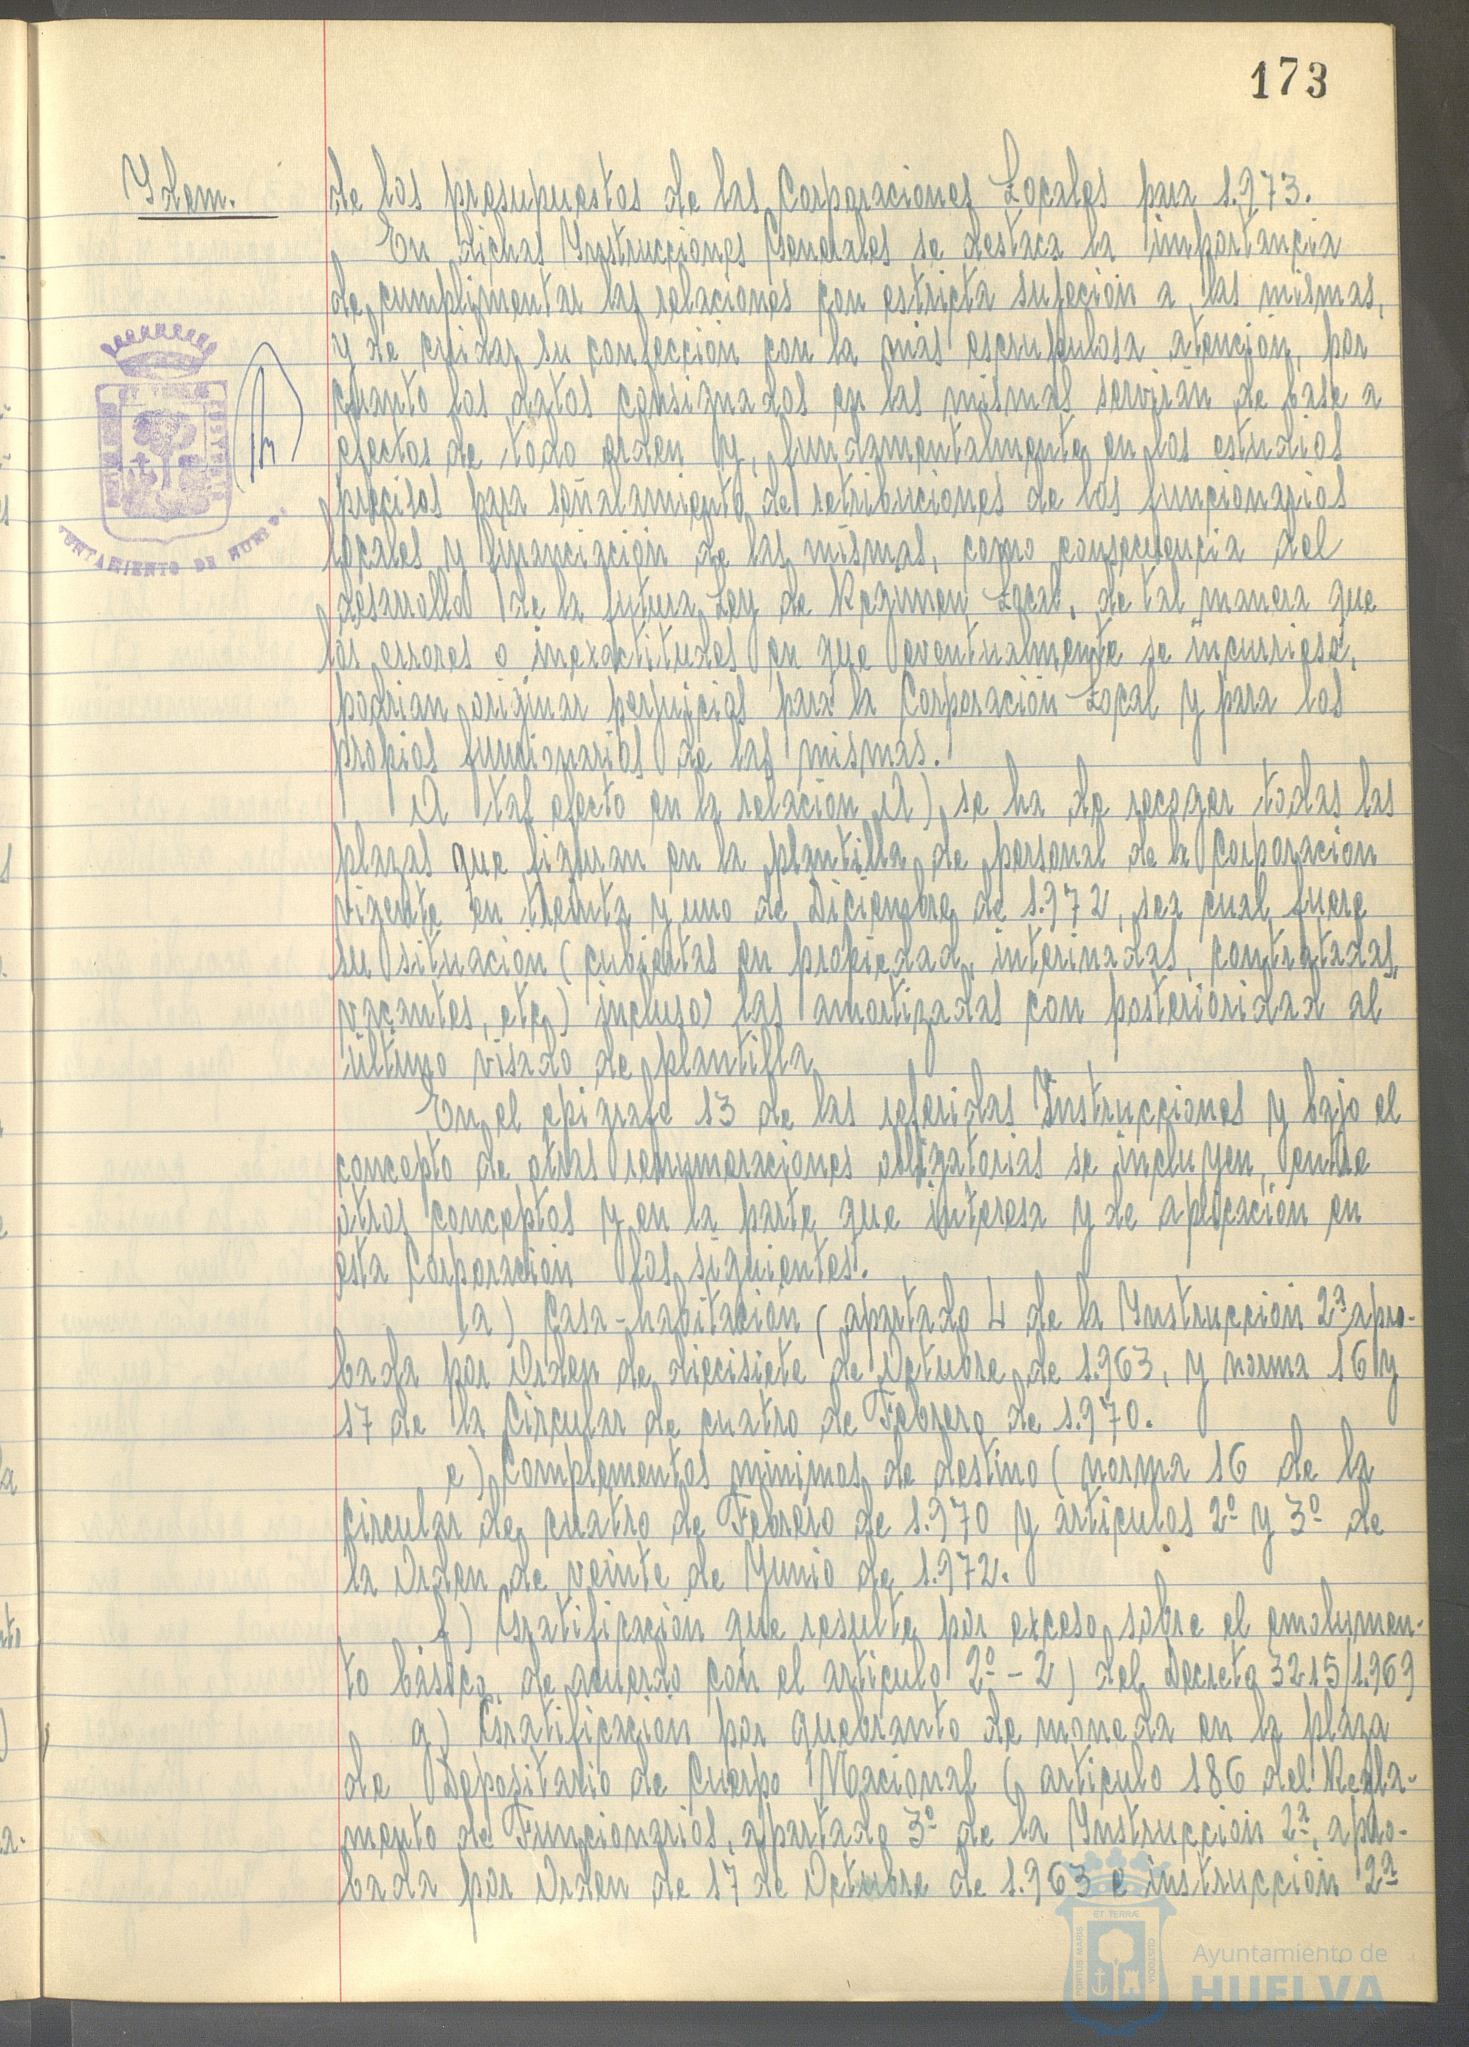 173
Ydem.
de los presupuestos de las Corporaciones Locales para 1.973.
En dichas Ynstrucciones Generales se destaca la importancia
de cumplimentar las relaciones con estricta sujeción a las mismas,
y de cuidar su confección con la más escrupulosa atención, por
cuanto los datos consignados en las mismas servirán de base a
efectos de todo orden y, fundamentalmente en los estudios
precisos para señalamiento de retribuciones de los funcionarios
locales y financiación de las mismas, como consecuencia del
desarrollo de la futura Ley de Regimen Local, de tal manera que
los errores o inexactitudes en que eventualmente se incurriese,
podrian originar perjuicios para la Corporación Local y para los
propios funcionarios de las mismas.
A tal efecto en la relación A) se ha de recoger todas las
plazas que figuran en la plantilla de personal de la Corporación
vigente en treinta y uno de Diciembre de 1.972, sea cual fuere
su situación (cubiertas en propiedad, interinadas, contratadas,
vacantes, etc.) incluso las amortizadas con posterioridad al
último visado de plantilla
En el epigrafe 13 de las referidas Ynstrucciones y bajo el
concepto de otras remuneraciones obligatorias se incluyen, entre
otros conceptos y en la parte que interesa y de aplicación en
esta Corporación los siguientes.
a) Casa-habitación (apartado 4 de la Ynstrucción 2ª apro-
bada por Orden de diecisiete de Octubre de 1.963, y norma 16 y
17 de la Circular de cuatro de Febrero de 1.970.
e) Complementos minimos de destino (norma 16 de la
Circular de cuatro de Febrero de 1.970 y articulos 2º y 3º de
la Orden de veinte de Yunio de 1.972.
f) Gratificación que resulte por exceso sobre el emolumen-
to básico, de acuerdo con el articulo 2º-2) del Decreto 3215/1.969
g) Gratificación por quebranto de moneda en la plaza
de Depositario de Cuerpo Nacional (articulo 186 del Regla-
mento de Funcionarios, apartado 3º de la Ynstrucción 2ª, apro-
bada por Orden de 17 de Octubre de 1.963 e instrucción 2ª
AYUNTAMIENTO DE HUELVA
PORTUS MARIS ET TERRÆ CUSTODIA
Ayuntamiento de
HUELVA